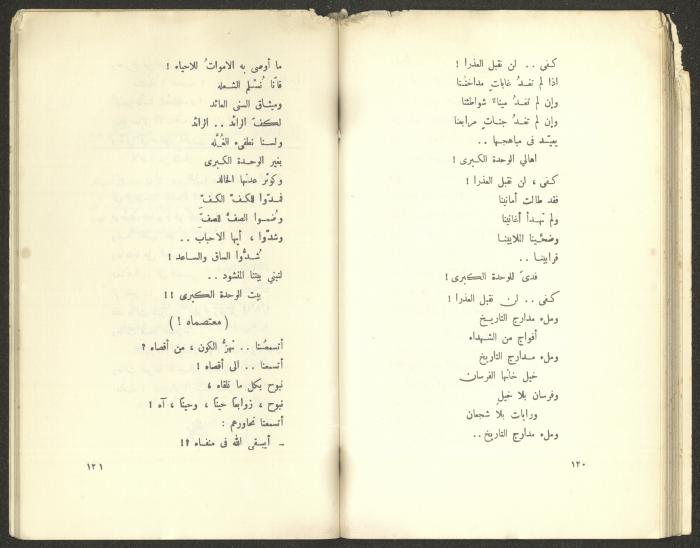 كفى .. لن نقبل العذرا !
اذا لم تغدُ غاباتٍ مداخننا
وإن لم تغدُ ميناءً شواطئنا
وإن لم تغدُ جناتٍ مرابعنا
يعيّد فى مباهجها ..
اهالي الوحدة الكبرى !
كفى ، لن نقبل العذرا !
فقد طالت أمانينا
ولم تهدأ أغانينا
وضحَّينا الملايينا
قرابينا ..
فدىً للوحدة الكبرى !
كفى .. لن نقبل العذرا !
وملء مدارج التاريخ
أفواج من الشهداء
وملء مدارج التاريخ
خيل خانها الفرسان
وفرسان بلا خيلٍ
ورايات بلا شجعان
وملء مدارج التاريخ ..
١٢٠
ما أوصى به الاموتُ للاحياء !
فانّا نُسْلم الشعله
وميثاق السنى العائد
لكفّ الرائد .. الرائد
ولسنا نطفىء الغُلّه
بغير الوحدة الكبرى
وكوثر عدنها الخالد
فمدّوا للكفّ الكفّ
وضُموا الصفَّ للصفّ
وشدّوا ، أيها الاحباب ..
شُدُّوا الساق والساعد !
لنبني بيتنا المنشود ..
بيت الوحدة الكبرى !!
( معتصماه ! )
أتسمعُنا .. نهزُّ الكون ، من أقصاه ؟
أتسمعنا .. الى أقصاه !
نبوح بكل ما نلقاه ،
نبوح ، زوابعاً حيناً ، وحيناً ، آه !
أتسمعنا نحاورهم :
ــ أيبقى الله فى منفاه ؟!
١٢١